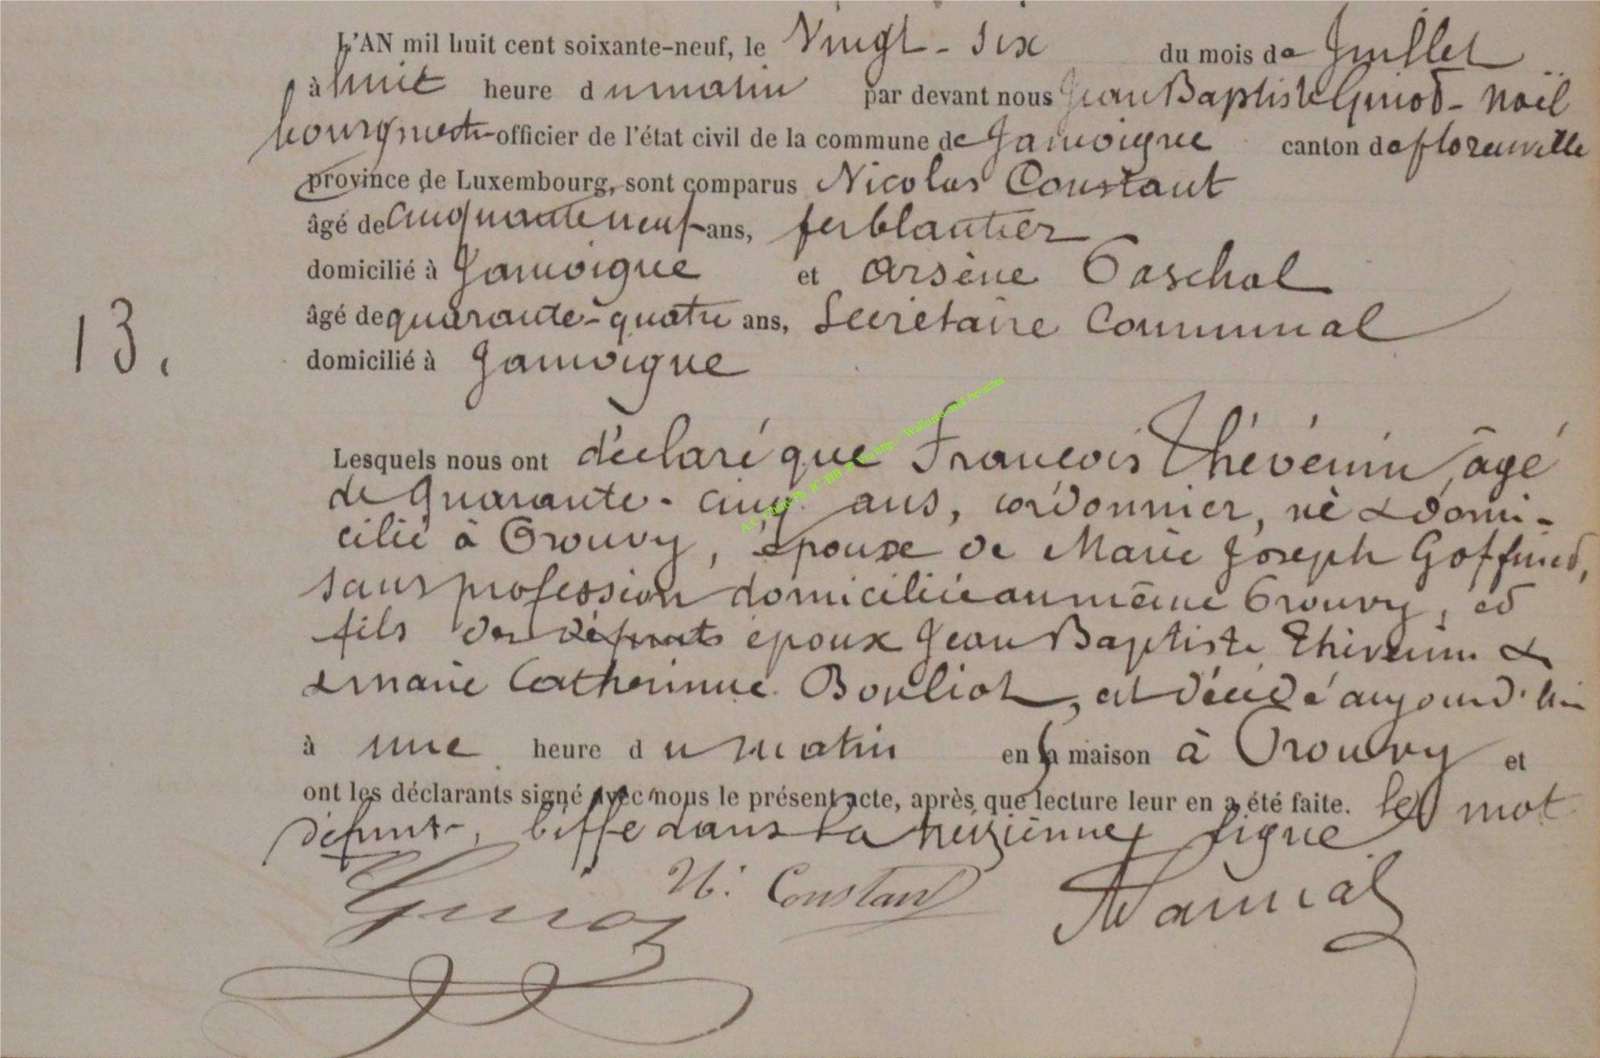 L'AN mil huit cent soixante-neuf, le Vingt-six du mois de Juillet
à huit heure du matin par devant nous Jean Baptiste Guiot-Noël
bourgmestre officier de l'état civil de la commune de Jamoigne canton de florenville
province de Luxembourg, sont comparus Nicolas Constant
âgé de cinquante neuf ans, ferblantier
domicilié à Jamoigne et Arsène Paschal
âgé de quarante-quatre ans, Secrétaire Communal
13. domicilié à Jamoigne
Lesquels nous ont déclaré que François Thévenin, âgé
de quarante-cinq ans, cordonnier, né & domi-
cilié à Prouvy, époux de Marie Joseph Goffinet,
sans profession domiciliée au même Prouvy, et
fils des défunts époux Jean Baptiste Thévenin &
& marie Catherinne Bouliot, est décédé aujourd'hui
à une heure du matin en sa maison à Prouvy et
ont les déclarants signé avec nous le présent acte, après que lecture leur en a été faite. le mot
défunts, biffé dans la treizième ligne
Guiot N. Constant